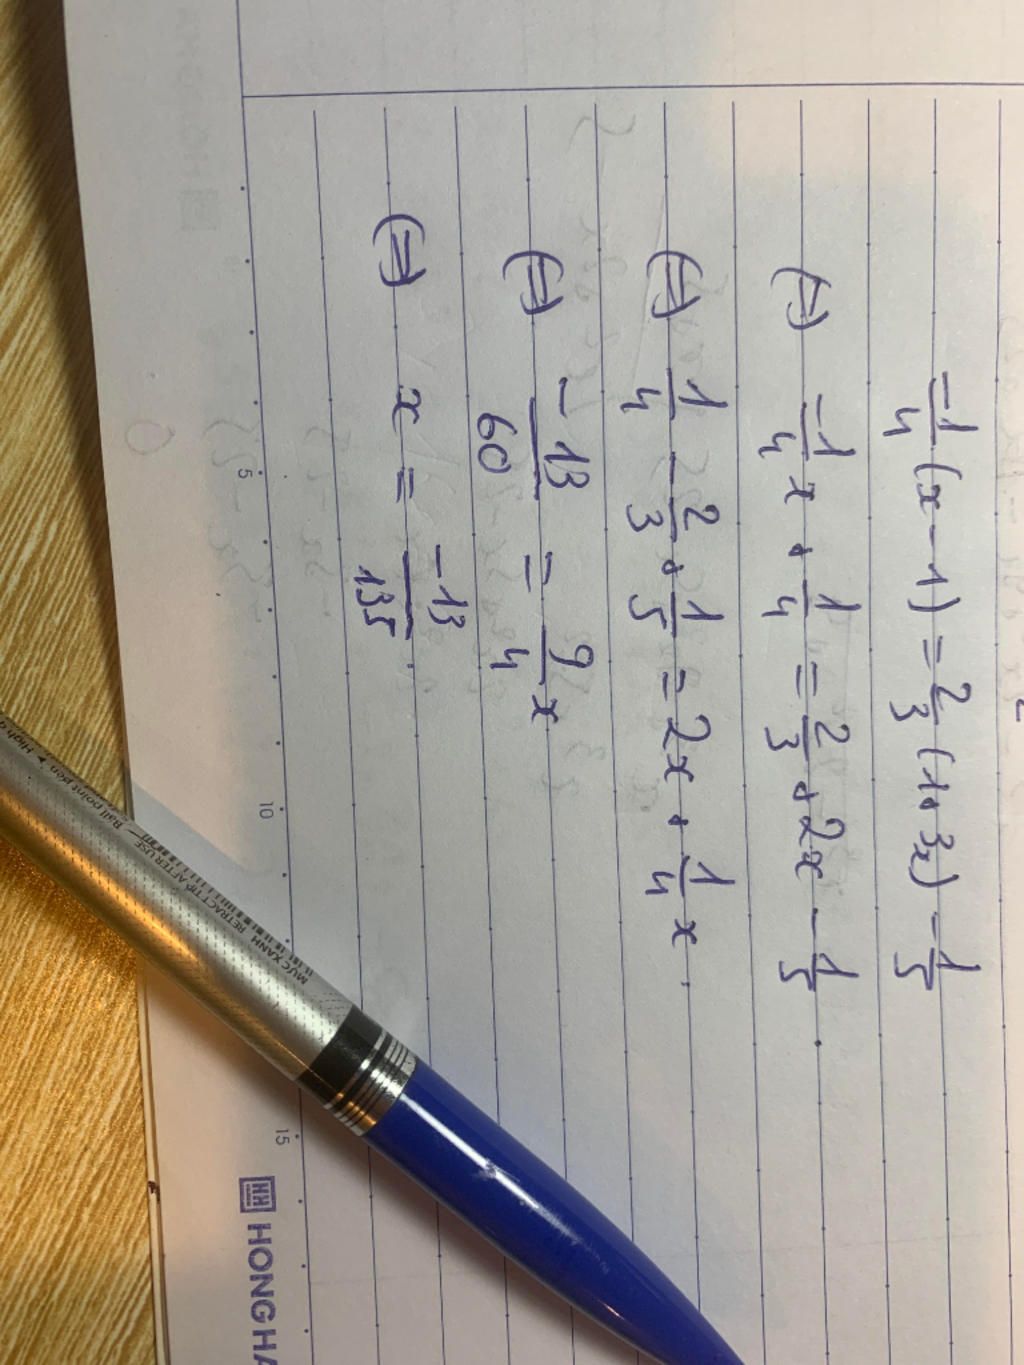 -1/4 (x - 1) = 2/3 (1 + 3x) - 1/5
(=) -1/4 x + 1/4 = 2/3 + 2x - 1/5
(=) 1/4 - 2/3 + 1/5 = 2x + 1/4 x.
(=) -13/60 = 9/4 x
(=) x = -13/135.
5 10 15
HH HONG HA
MỰC XANH RETRACT TIP AFTER USE
Ball point pen